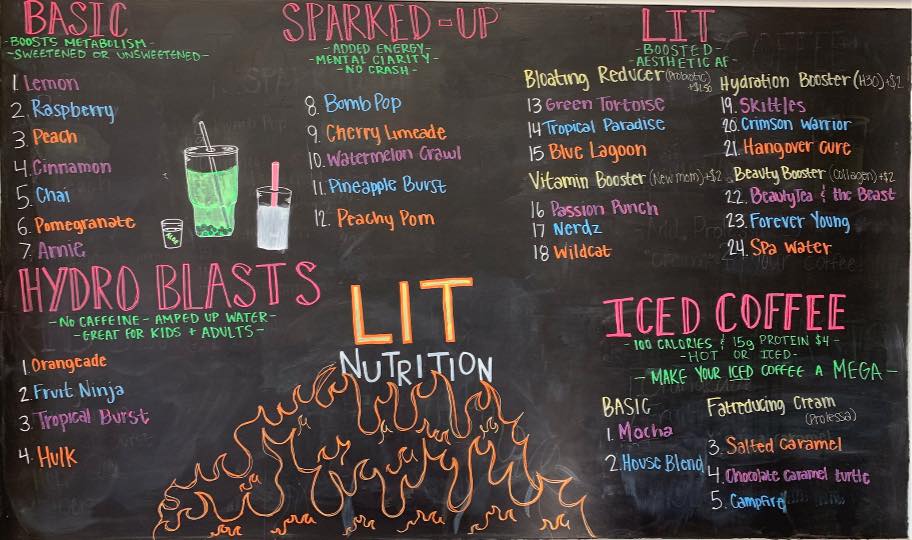 BASIC
- BOOSTS METABOLISM -
- SWEETENED OR UNSWEETENED -
1. Lemon
2. Raspberry
3. Peach
4. Cinnamon
5. Chai
6. Pomegranate
7. Arnie
SPARKED-UP
- ADDED ENERGY -
- MENTAL CLARITY -
- NO CRASH -
8. Bomb Pop
9. Cherry Limeade
10. Watermelon Crawl
11. Pineapple Burst
12. Peachy Pom
LIT
- BOOSTED -
- AESTHETIC AF -
Bloating Reducer (Probiotic) +$1.50
13 Green Tortoise
14 Tropical Paradise
15 Blue Lagoon
Vitamin Booster (New mom) +$2
16 Passion Punch
17 Nerdz
18 Wildcat
Hydration Booster (H3O) +$2
19. Skittles
20. Crimson Warrior
21. Hangover cure
Beauty Booster (Collagen) +$2
22. BeautyTea & the Beast
23. Forever Young
24. Spa water
HYDRO BLASTS
- NO CAFFEINE - AMPED UP WATER -
- GREAT FOR KIDS + ADULTS -
1. Orangeade
2. Fruit Ninja
3. Tropical Burst
4. Hulk
LIT
NUTRITION
ICED COFFEE
- 100 CALORIES & 15g PROTEIN $4 -
- HOT OR ICED -
- MAKE YOUR ICED COFFEE A MEGA -
BASIC
1. Mocha
2. House Blend
Fatreducing Cream
(Prolessa)
3. Salted Caramel
4. Chocolate caramel turtle
5. Campfire